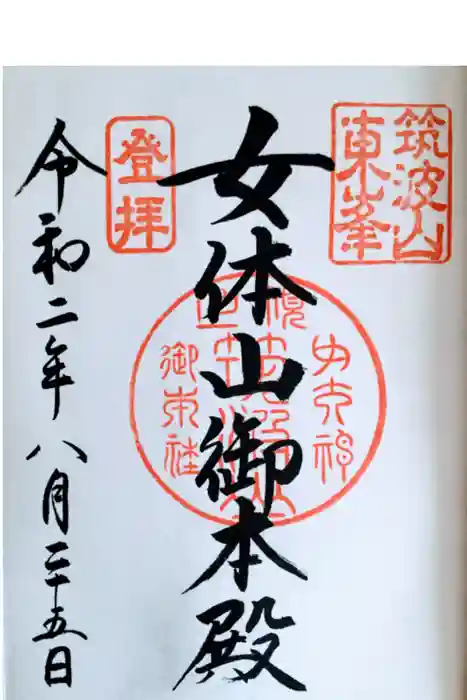 筑波山
東峯
女体山御本殿
登拝
令和二年八月二十五日
御本社